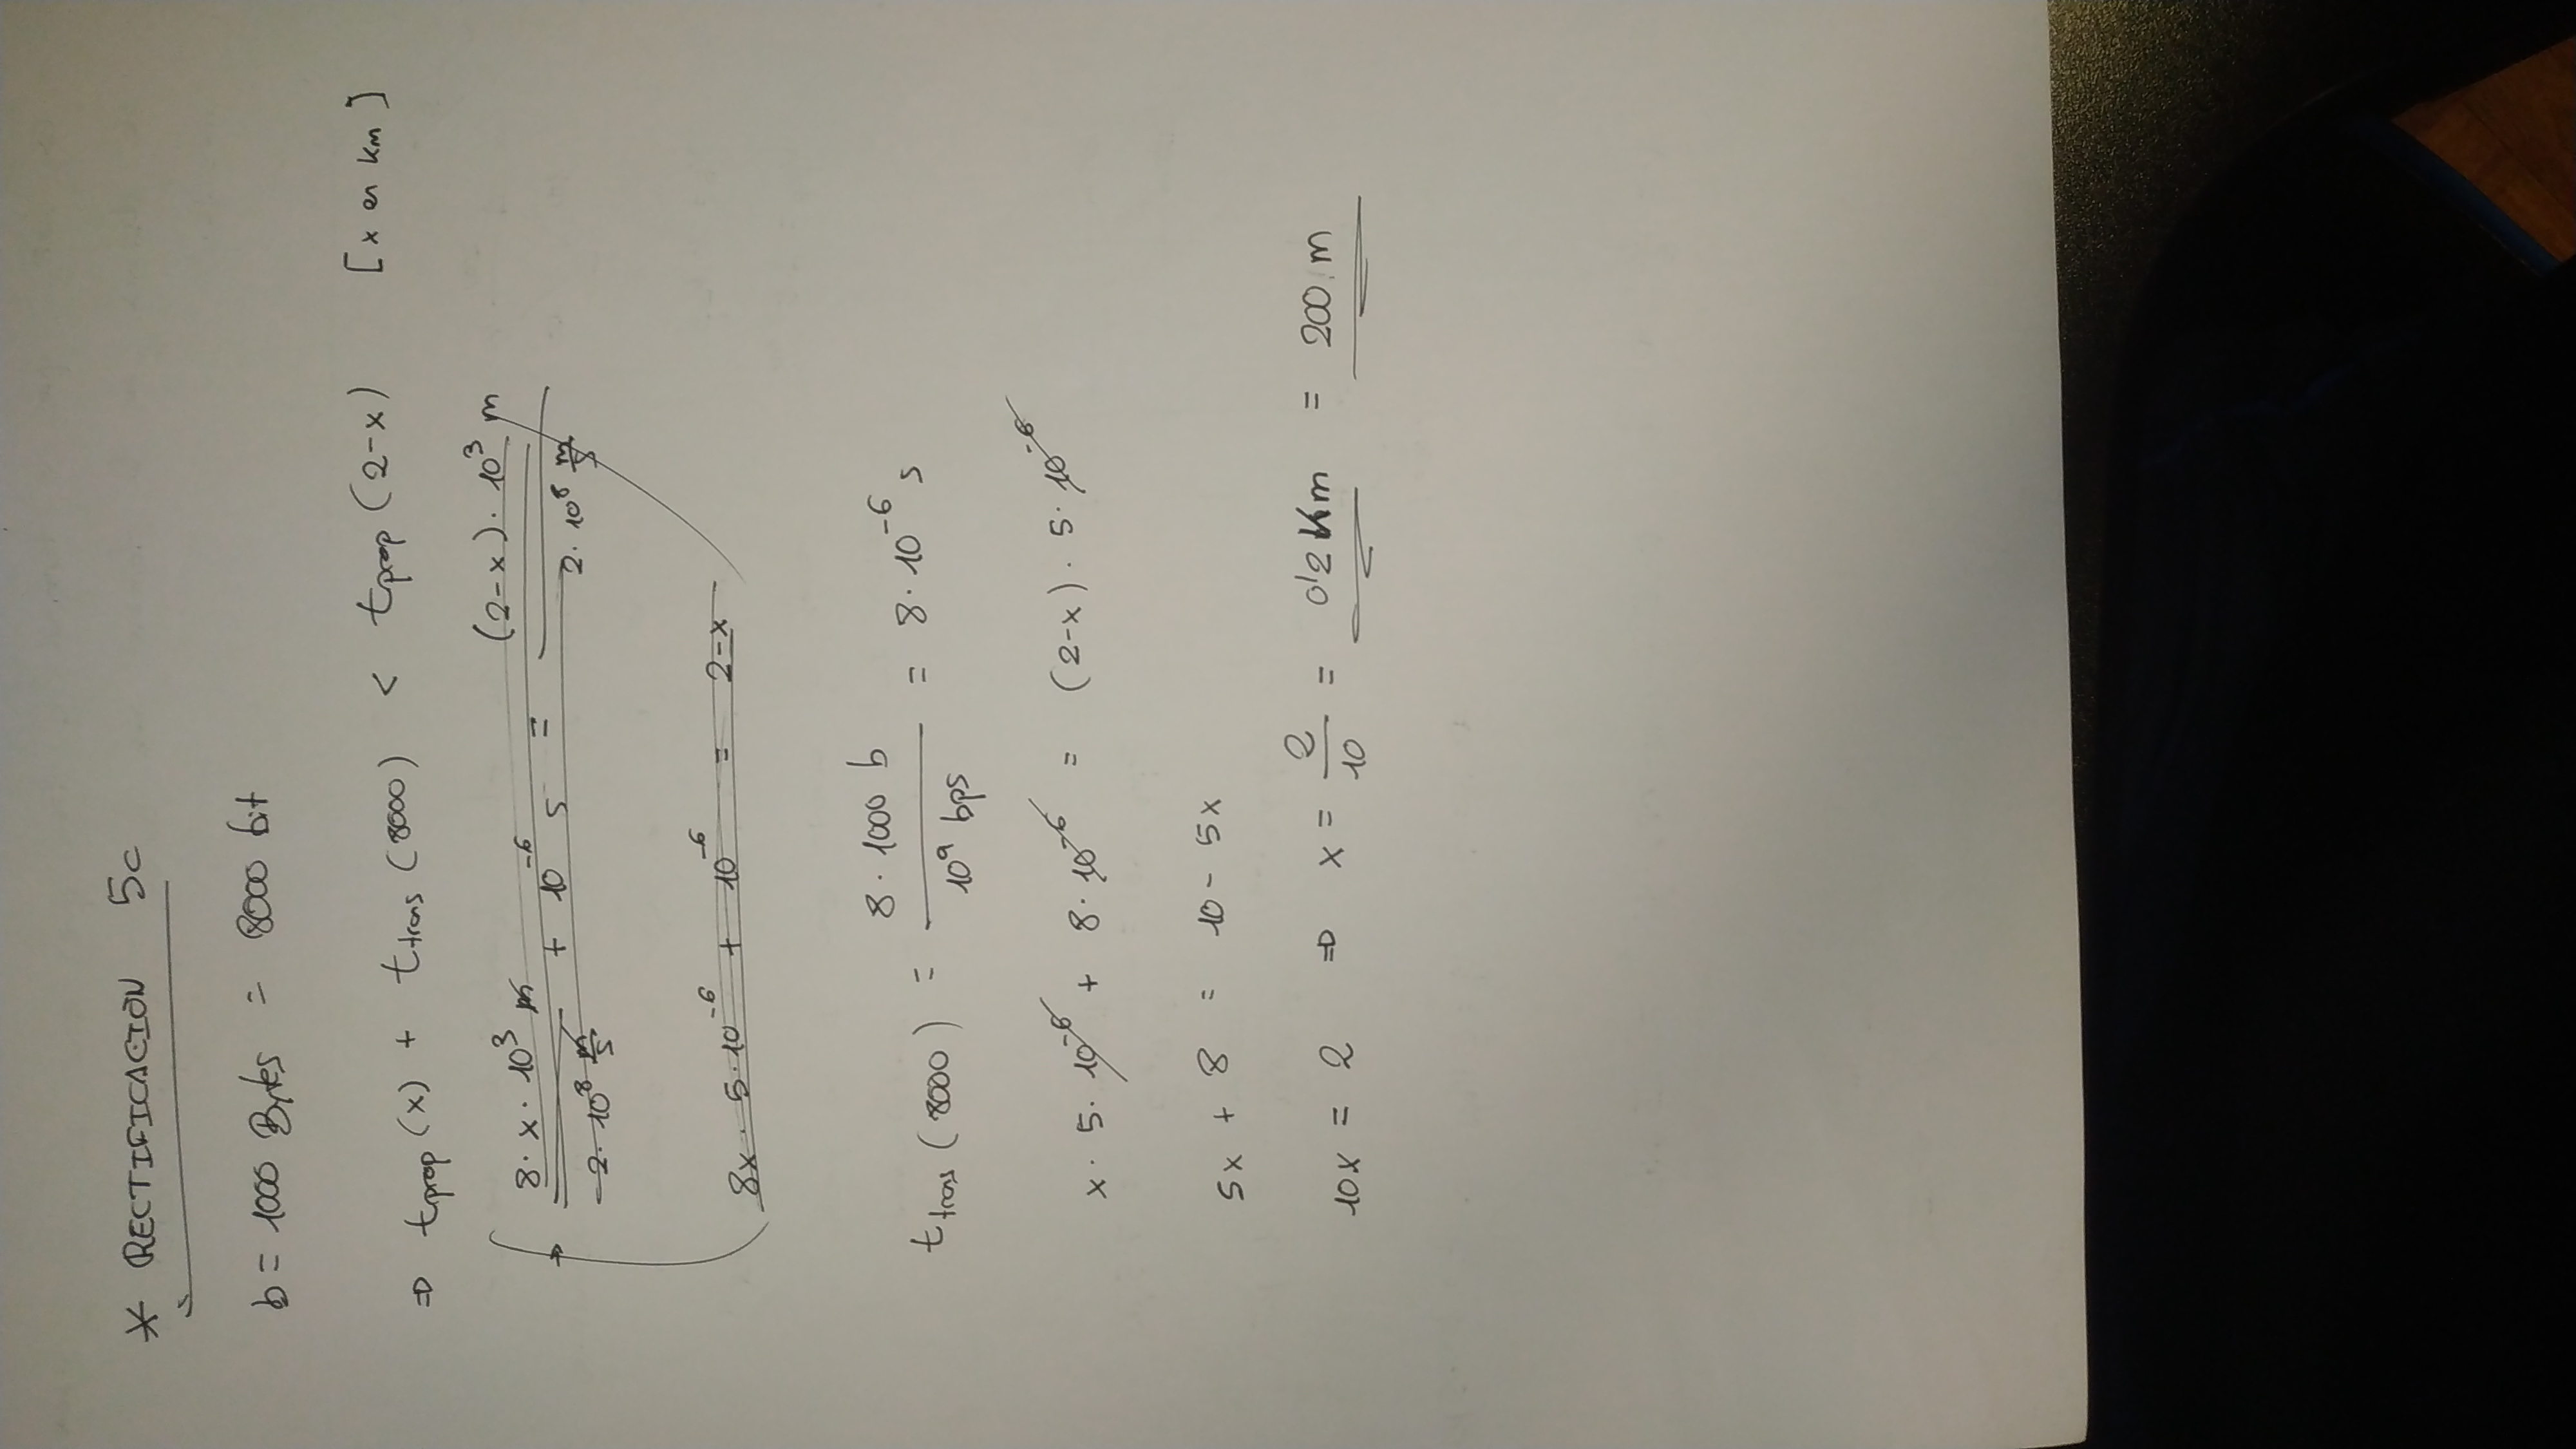 * RECTIFICACION 5c
b = 1000 Bytes = 8000 bit
⇒ t_prop (x) + t_trans (8000) < t_prop (2-x) [x en km]
→ 8·x·10³ m / 2·10⁸ m/s + 10⁻⁶ s = (2-x)·10³ m / 2·10⁸ m/s
8x · 5·10⁻⁶ + 10⁻⁶ = 2-x
t_trans (8000) = 8·1000 b / 10⁹ bps = 8·10⁻⁶ s
x · 5·10⁻⁶ + 8·10⁻⁶ = (2-x)·5·10⁻⁶
5x + 8 = 10 - 5x
10x = 2 ⇒ x = 2/10 = 0'2 Km = 200 m